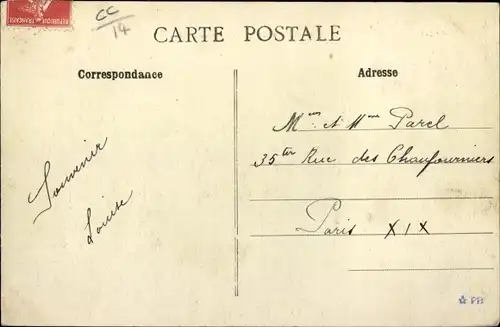 REPUBLIQUE FRANÇAISE
CC
14
CARTE POSTALE
Correspondance
Adresse
Souvenir
Louise
Mr et Mme Parel
35ter Rue des Chaufourniers
Paris XIX
☆ PB